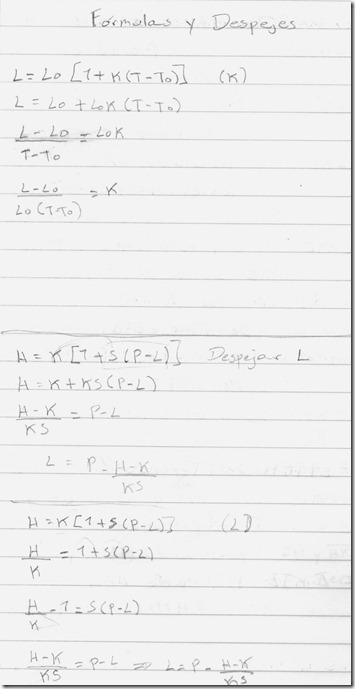 Formulas y Despejes
L = Lo [1 + K (T - To)] (K)
L = Lo + LoK (T - To)
L - Lo / T - To = LoK
L - Lo / Lo (T - To) = K
H = K [1 + S (P - L)] Despejar L
H = K + KS (P - L)
H - K / KS = P - L
L = P - H - K / KS
H = K [1 + S (P - L)] (L)
H / K = 1 + S (P - L)
H / K - 1 = S (P - L)
H - K / KS = P - L => L = P - H - K / KS